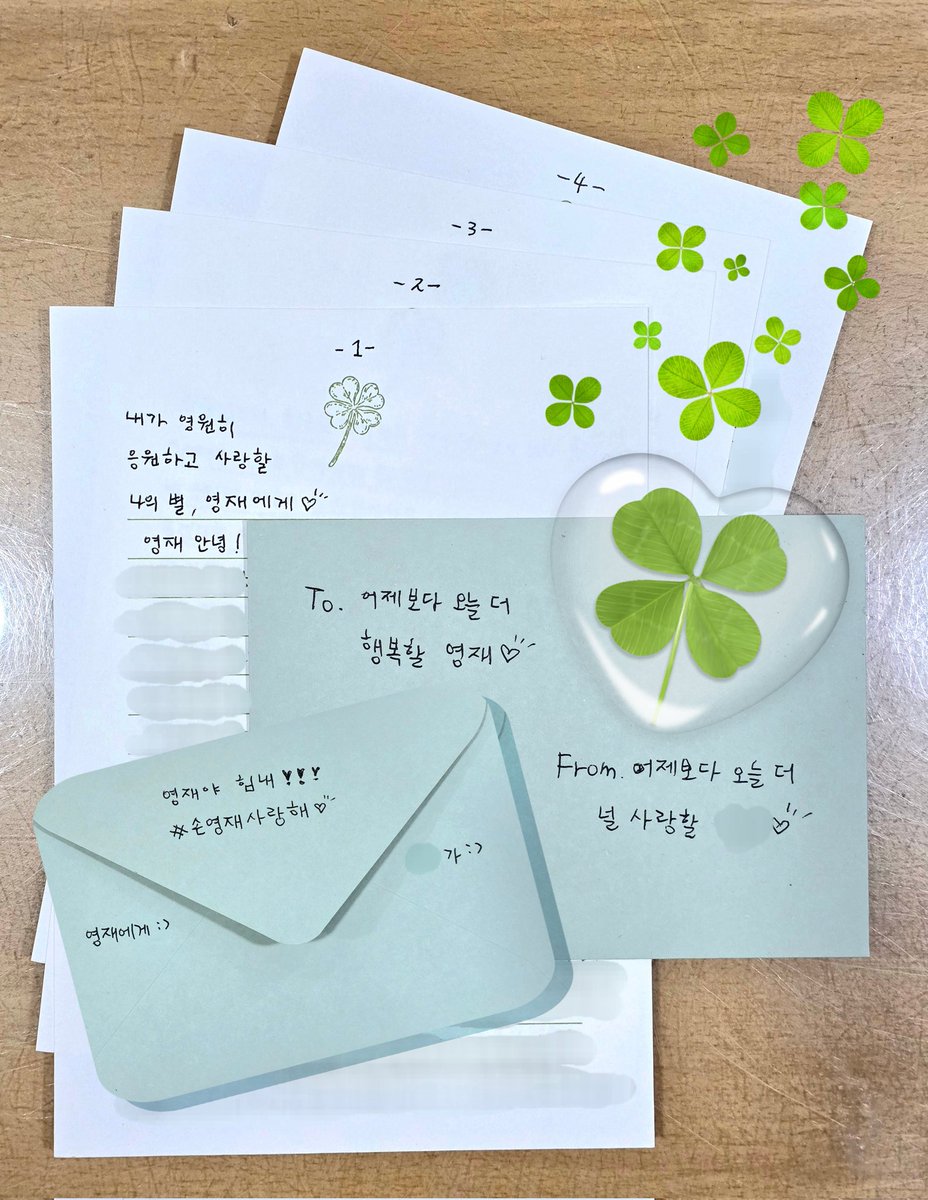 -4-
-3-
-2-
-1-
내가 영원히
응원하고 사랑할
나의 별, 영재에게♡
영재 안녕!
To. 어제보다 오늘 더
행복할 영재♡
From. 어제보다 오늘 더
널 사랑할 ♡
영재야 힘내❣❣❣
#손영재사랑해♡
가:)
영재에게:)